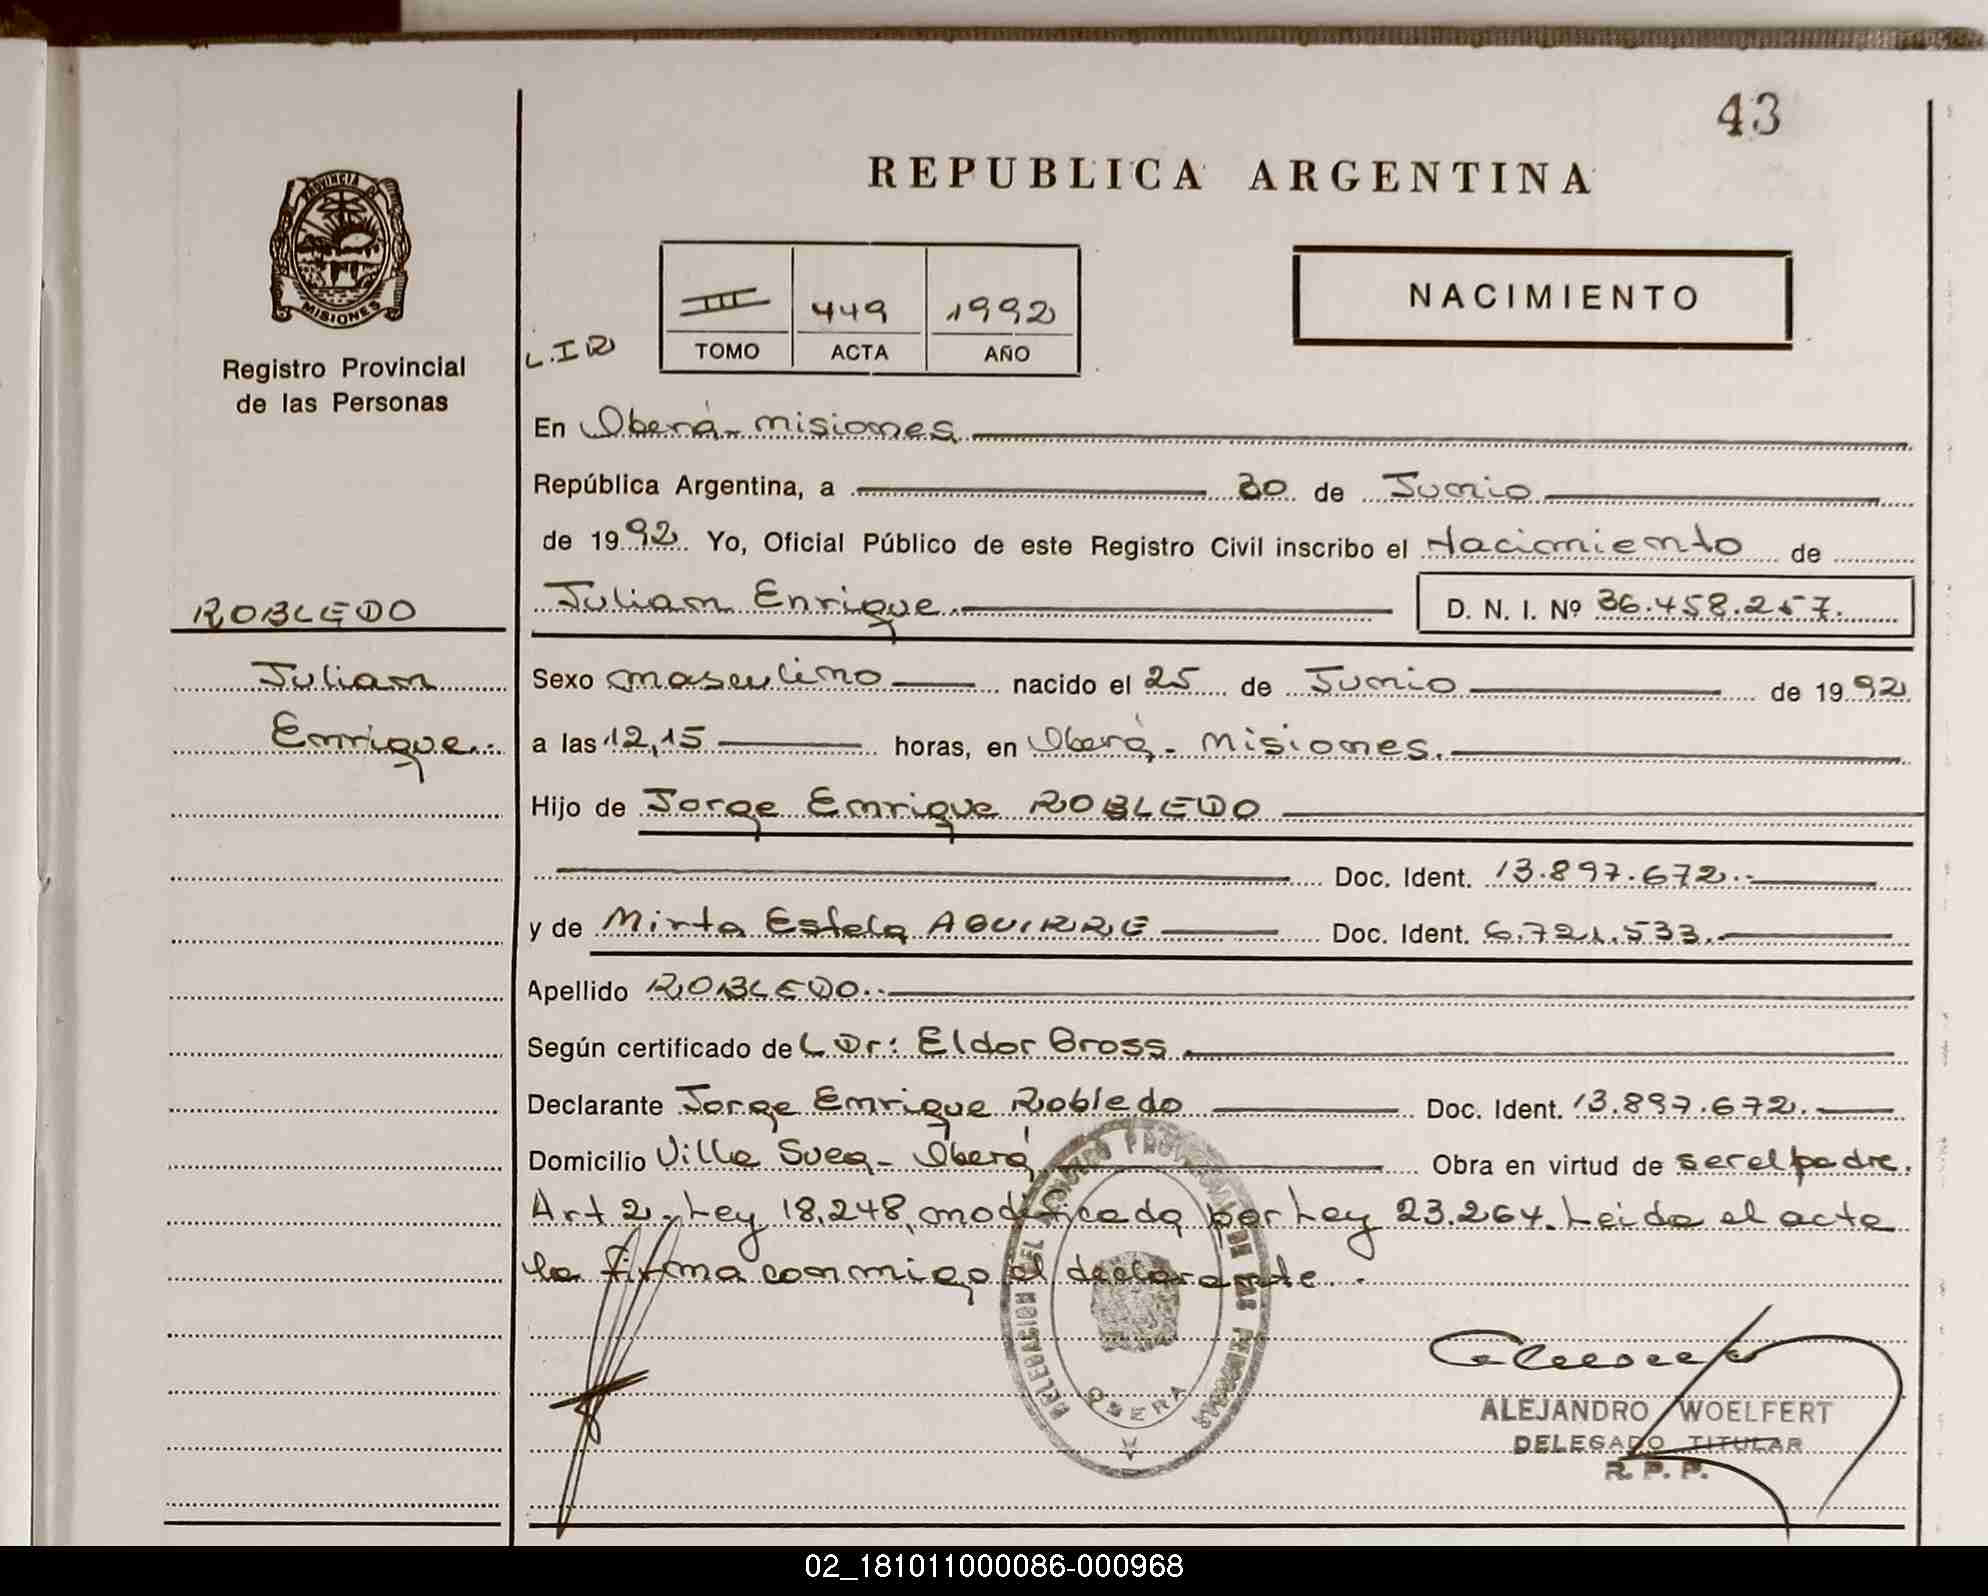 43
REPUBLICA ARGENTINA
PROVINCIA DE
MISIONES
Registro Provincial
de las Personas
L.I R
III 449 1992
TOMO ACTA AÑO
NACIMIENTO
En Oberá - Misiones
República Argentina, a 30 de Junio
de 1992 Yo, Oficial Público de este Registro Civil inscribo el Nacimiento de
Julian Enrique D. N. I. Nº 36.458.257.
ROBLEDO
Julian
Enrique.
Sexo masculino nacido el 25 de Junio de 1992
a las 12,15 horas, en Oberá - Misiones.
Hijo de Jorge Enrique ROBLEDO
Doc. Ident. 13.897.672.
y de Mirta Estela AGUIRRE Doc. Ident. 6.721.533.
Apellido ROBLEDO.
Según certificado de L Dr: Eldor Gross
Declarante Jorge Enrique Robledo Doc. Ident. 13.897.672.
Domicilio Villa Svea - Oberá Obra en virtud de ser el padre.
Art 2. Ley 18.248, modificada por Ley 23.264. Leida el acta
la firma conmigo el declarante.
DELEGACION DEL REGISTRO PROVINCIAL DE LAS PERSONAS
OBERA
ALEJANDRO WOELFERT
DELEGADO TITULAR
R. P. P.
02_181011000086-000968